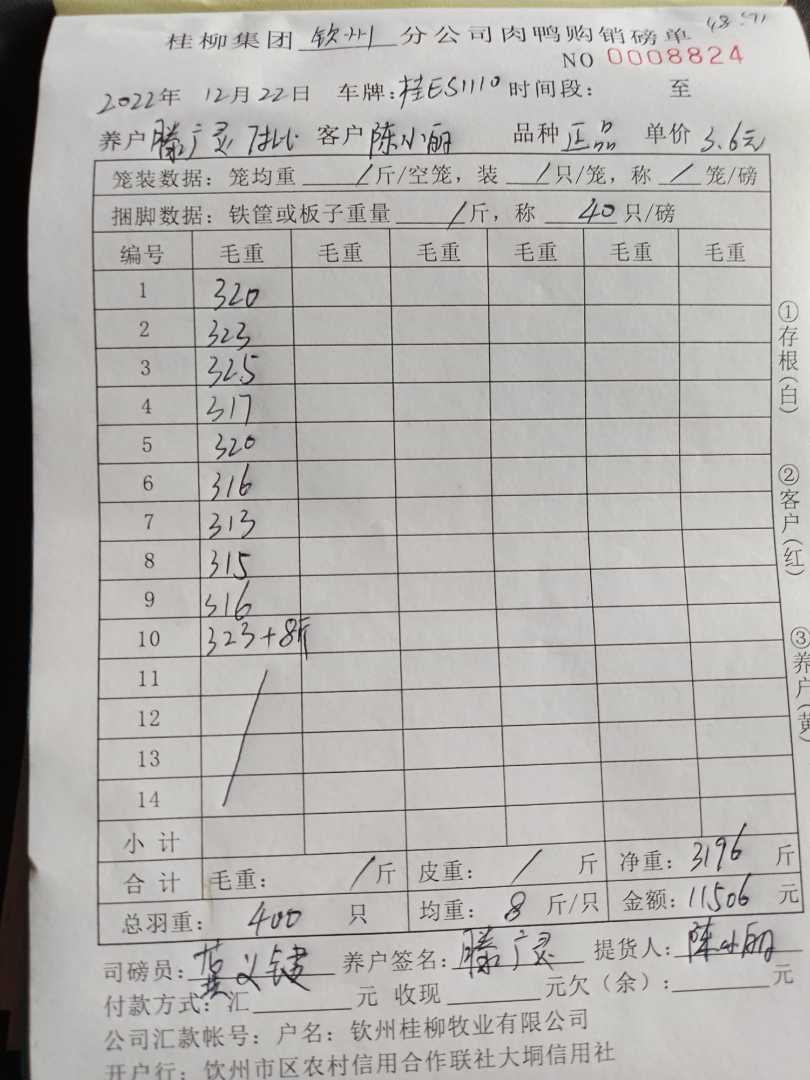 48:91
桂柳集团 钦州 分公司肉鸭购销磅单
NO 0008824
2022年 12月22日 车牌:桂ES1110 时间段: 至
养户 滕广灵 客户 陈小丽 品种 正品 单价 3.6元
笼装数据: 笼均重 / 斤/空笼, 装 / 只/笼, 称 / 笼/磅
捆脚数据: 铁筐或板子重量 / 斤, 称 40 只/磅
编号 毛重 毛重 毛重 毛重 毛重 毛重
1 320
2 323
3 325
4 317
5 320
6 316
7 313
8 315
9 316
10 323+8斤
11
12
13
14
小计
合计 毛重: / 斤 皮重: / 斤 净重: 3196 斤
总羽重: 400 只 均重: 8 斤/只 金额: 11506 元
司磅员: 黄义键 养户签名: 滕广灵 提货人: 陈小丽
付款方式: 汇 元 收现 元欠(余): 元
公司汇款帐号: 户名: 钦州桂柳牧业有限公司
开户行: 钦州市区农村信用合作联社大垌信用社
①存根(白)
②客户(红)
③养户(黄)